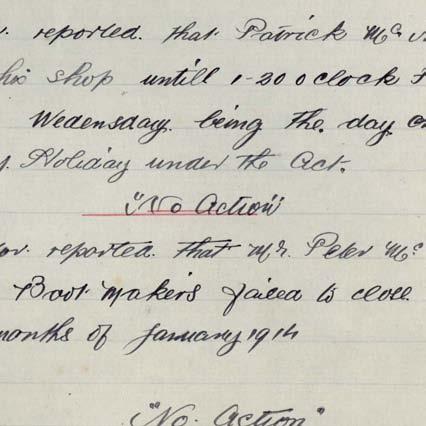 reported. that Patrick Mc
his shop untill 1-20 oclock
Wedensday. being the. day
Holiday under the Act.
"No Action"
or. reported. that Mr. Peter Mc
Boot. Makers failed to close.
months of January 1914
"No. Action"